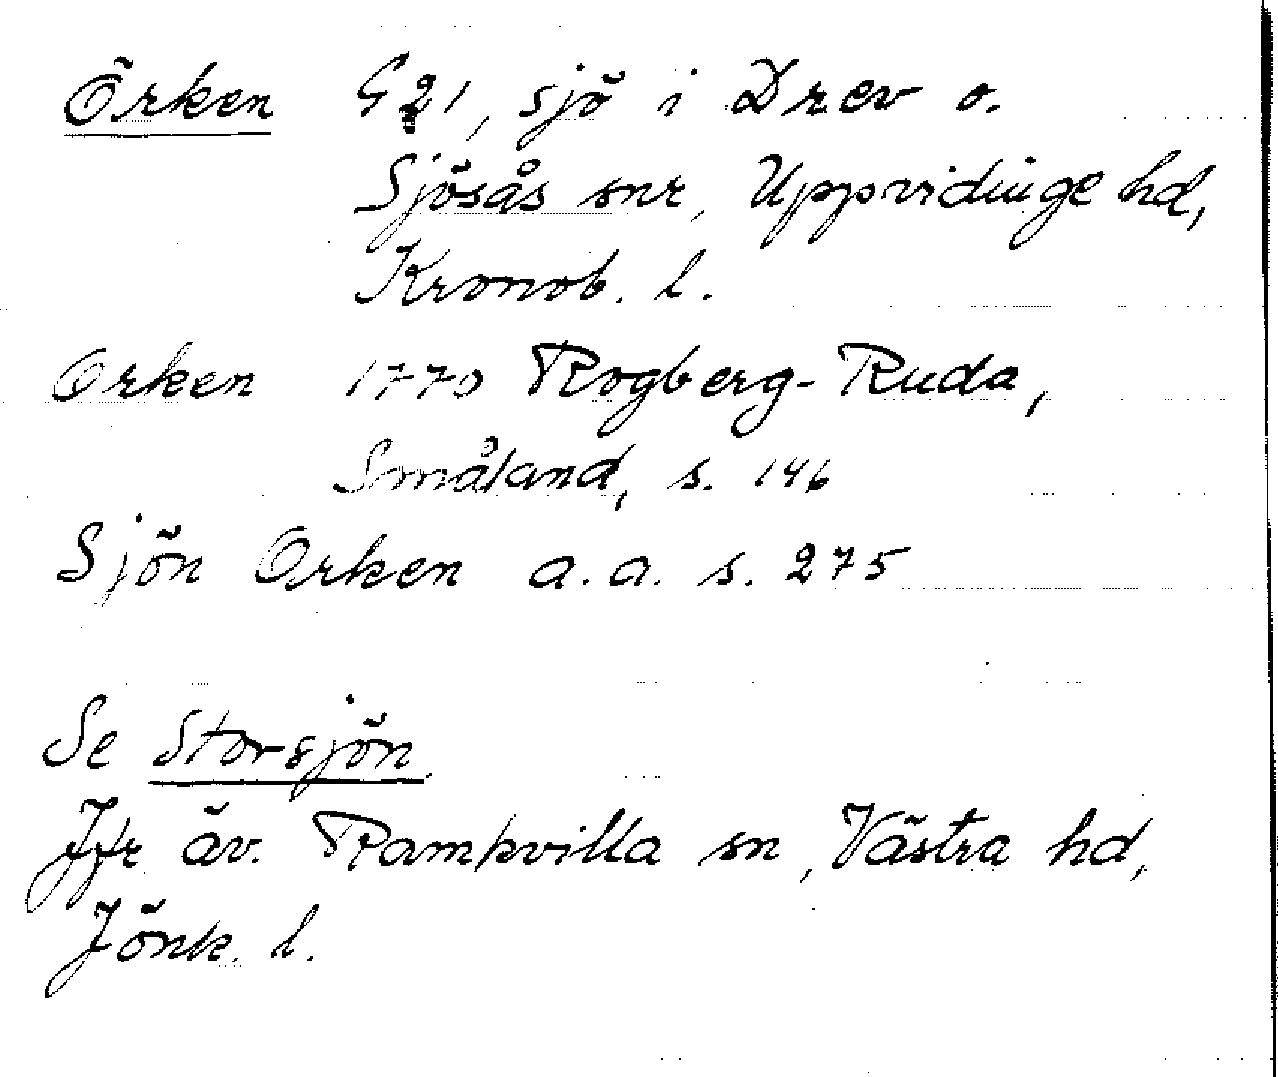 Örken G 21, sjö i Drev o.
Sjösås snr, Uppvidinge hd,
Kronob. l.
Orken 1770 Rogberg-Ruda,
Småland, s. 146
Sjön Orken a.a. s. 275
Se Storsjön.
Jfr äv. Ramkvilla sn, Västra hd,
Jönk. l.